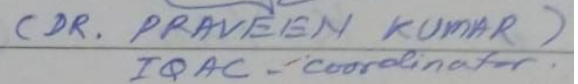 (DR. PRAVEEN KUMAR)
IQAC - coordinator.